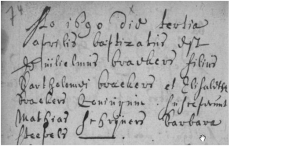 74
Ao 1690 die tertia
aprilis baptizatus est
Guilielmus braekers filius
Bartholomei braekers et Elisabetha
braekers Coniugum susceperunt
Mathias Schrijners barbara